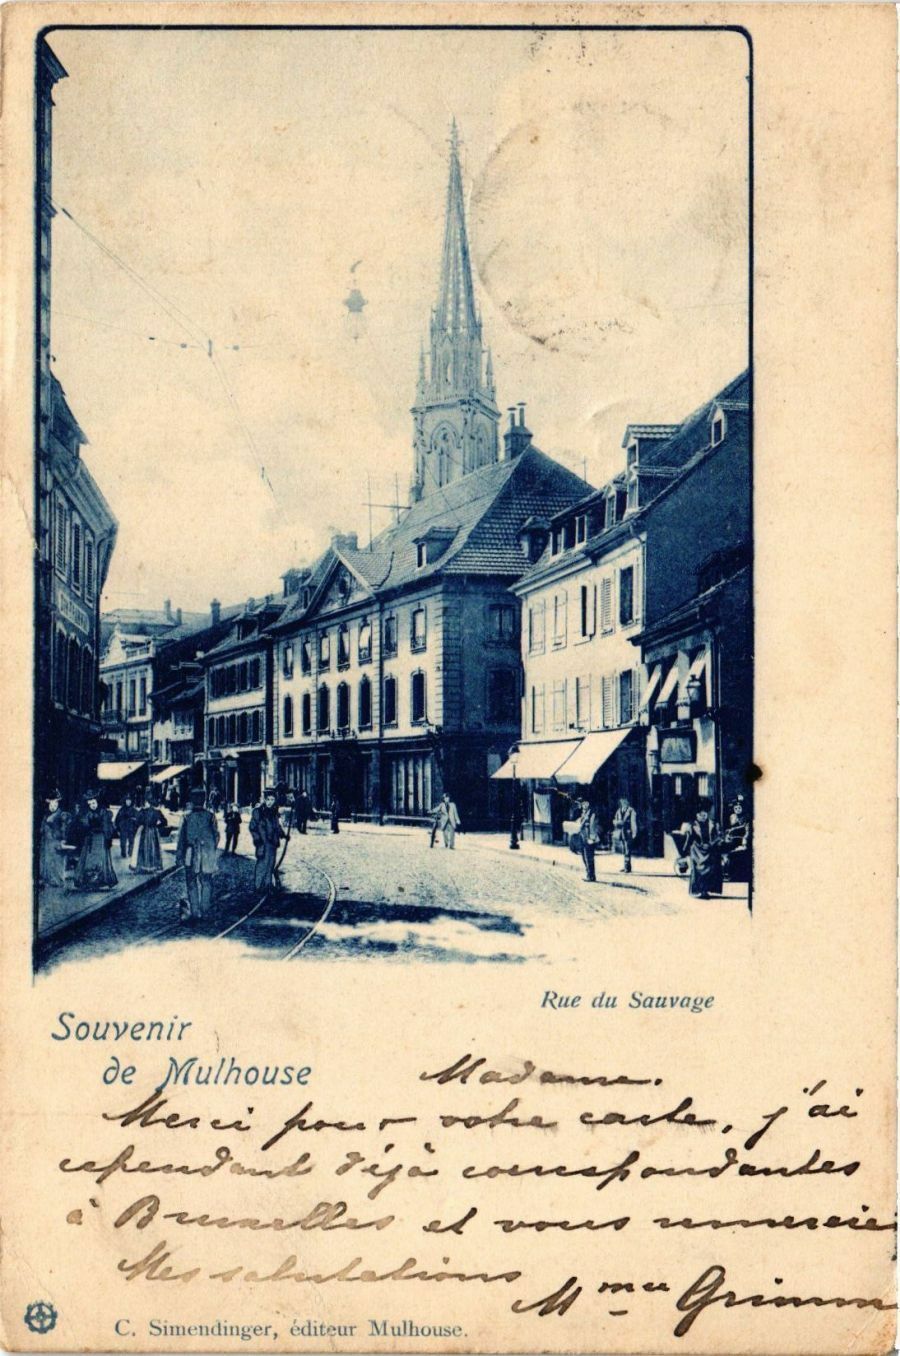 Rue du Sauvage
Souvenir
de Mulhouse
Madame.
Merci pour votre carte, j'ai
cependant déjà correspondantes
à Bruxelles et vous remercie
Mes salutations
Mme Grimm
C. Simendinger, éditeur Mulhouse.